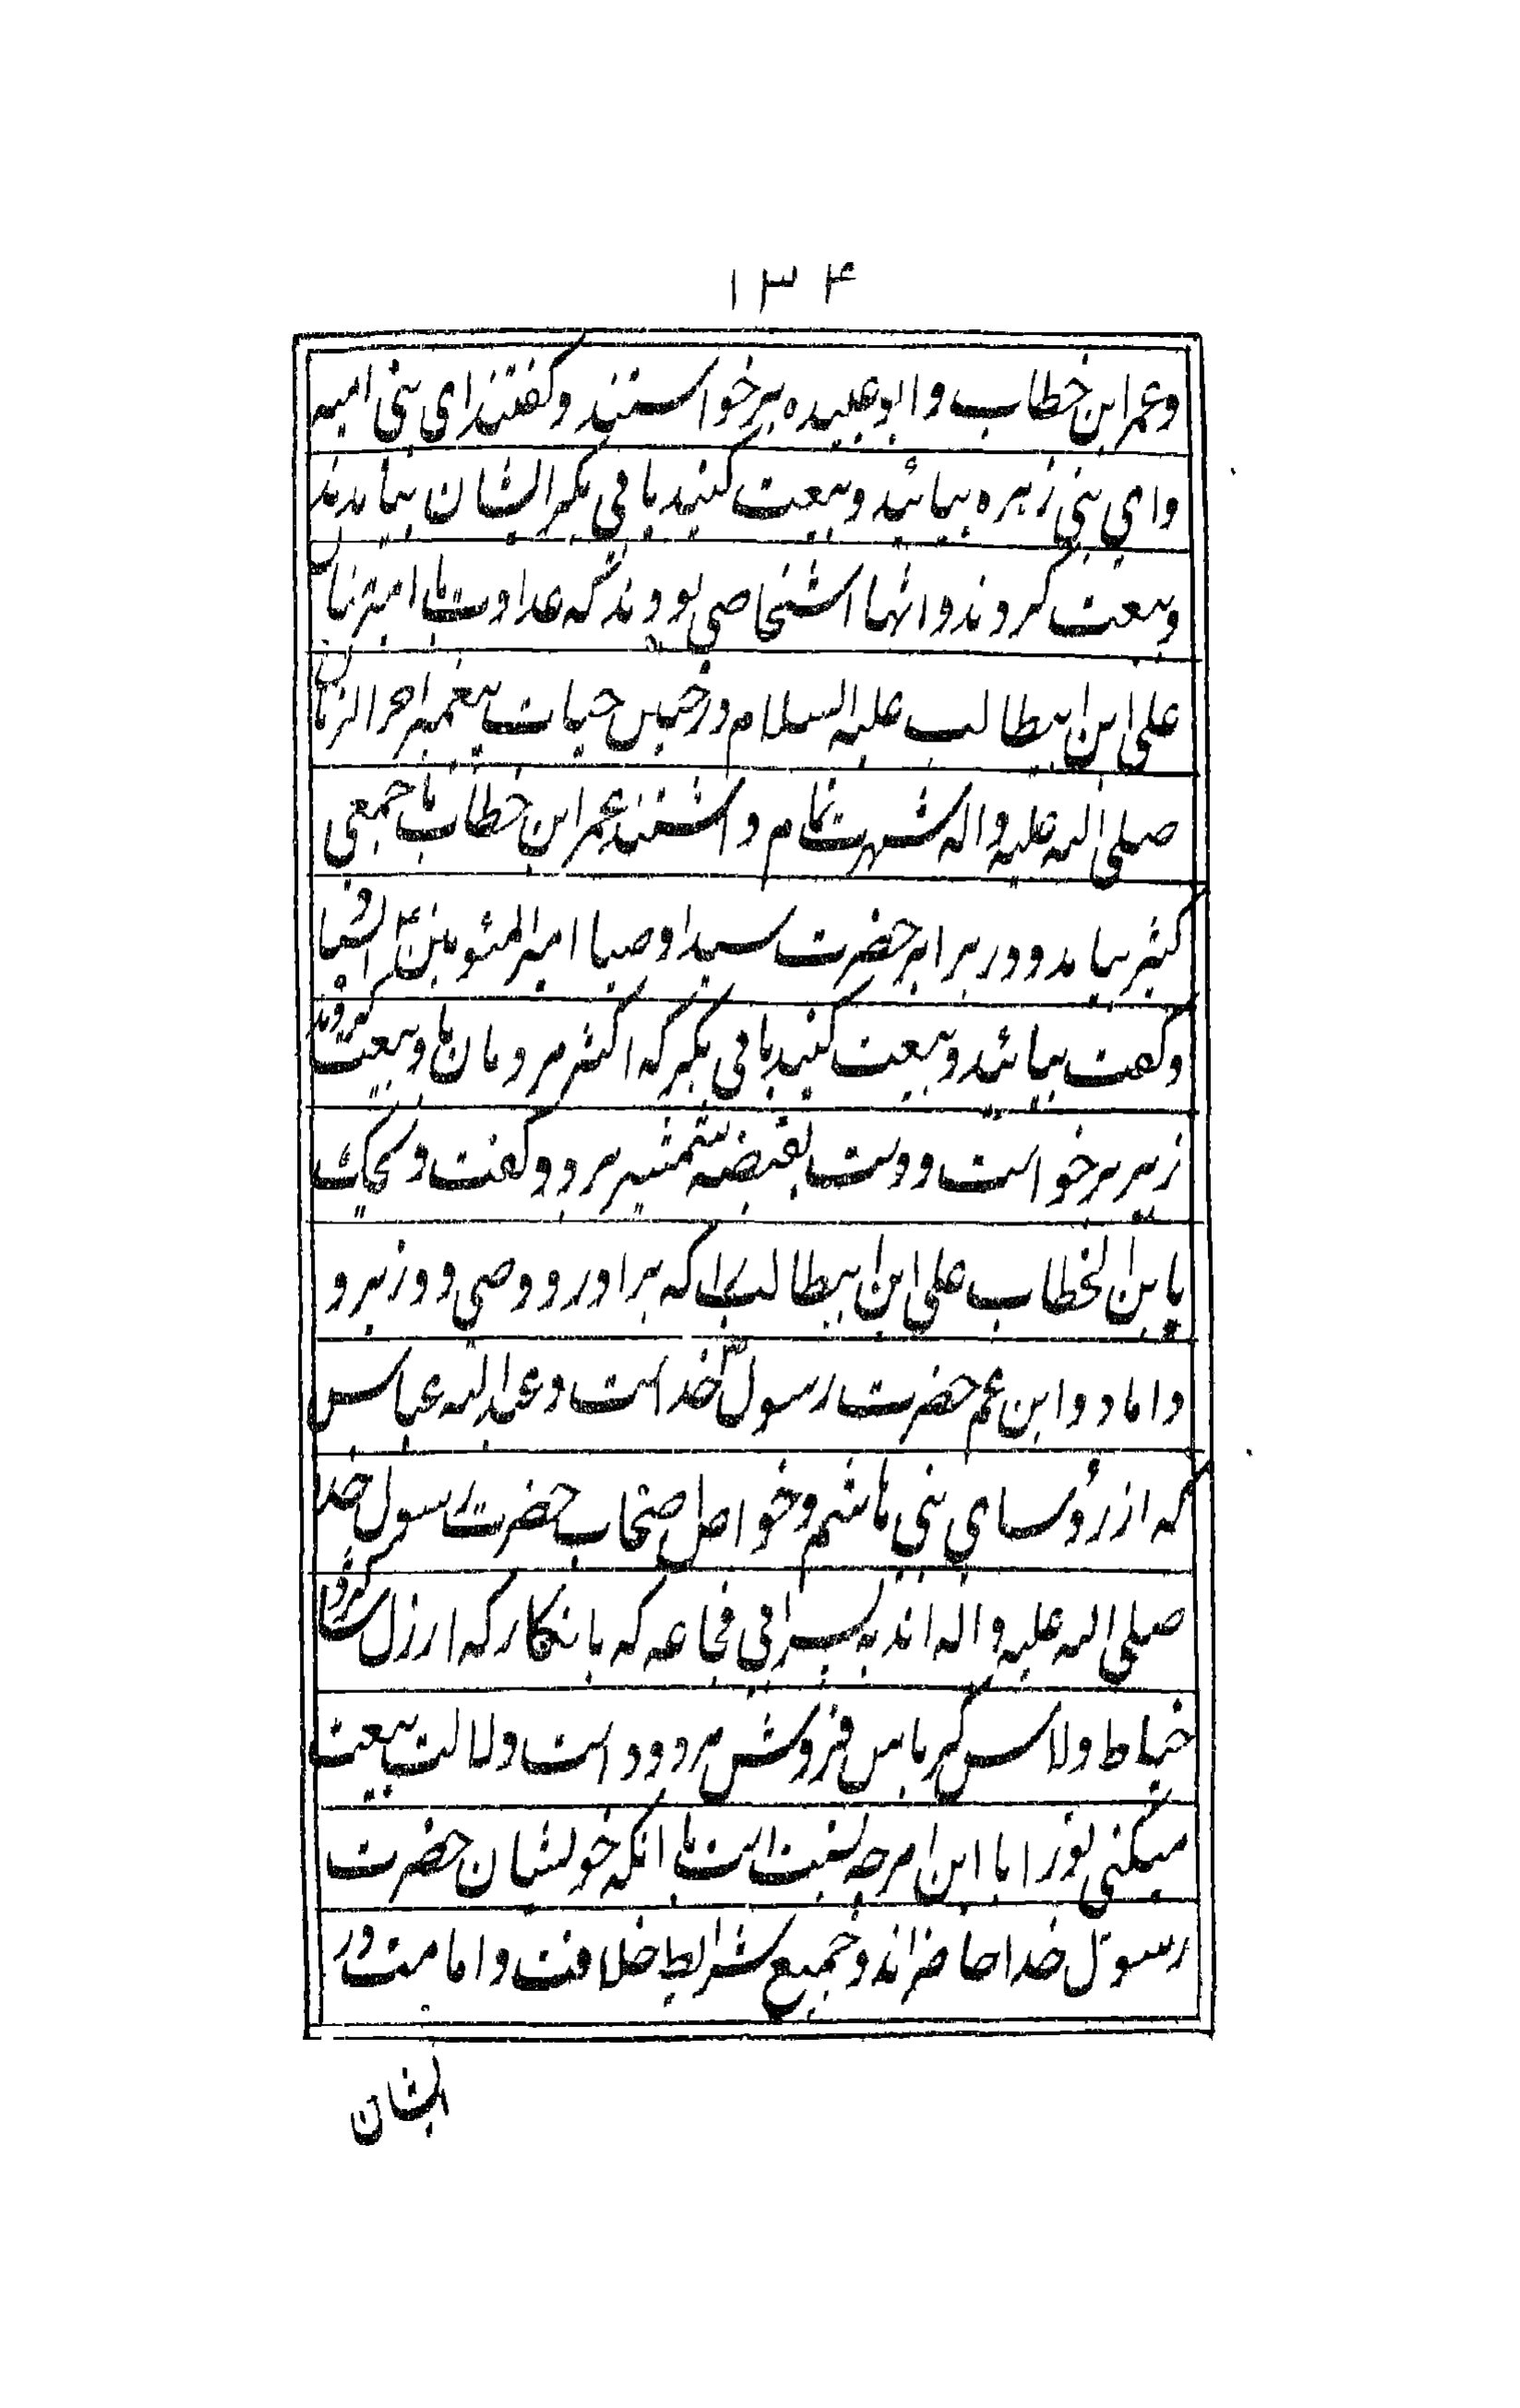 ۱۳۴
وعمر ابن خطاب وابو عبیده برخواستند وگفتند ای بنی امیه
وای بنی زهره بیائید وبیعت کنید بابی بکر ایشان بیامدند
وبیعت کردند وانها اشخاصی بودند که عداوت با
علی ابن ابیطالب علیه السلام در حیات پیغمبر اخر الزمان
صلی الله علیه واله شهرت تمام داشتند عمر ابن خطاب با جمعی
کثیر بیامد ودر برابر حضرت سید اوصیا امیر المئومنین
وگفت بیائید وبیعت کنید بابی بکر که اکثر مردمان با وبیعت کردند
زبیر برخواست ودست بقبضه شمشیر برد وگفت ویحک
یابن الخطاب علی ابن ابیطالب را که برادر ووصی ووزیر و
داماد وابن عم حضرت رسول خداست وعبدالله عباس
که از رؤسای بنی هاشم وخواص اصحاب حضرت رسول خدا
صلی الله علیه واله اند به پسر ابی قحافه که باینکار که ارزل
خیاط ودلاس کرباس فروش مردود است دلالت بیعت
میکنی تورا با این امر چه نسبت است با انکه خویشان حضرت
رسول خدا حاضراند وجمیع شرایط خلافت وامامت در
ایشان